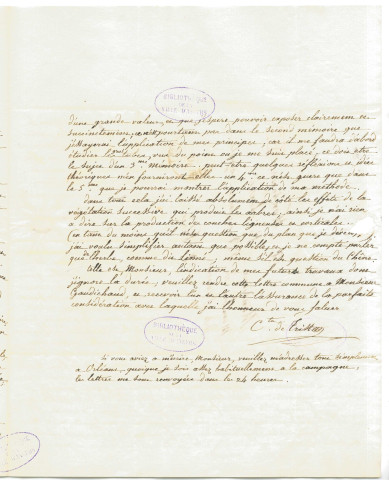 d'une grande valeur, et que j'espère pouvoir exposer clairement et
succinctement, ce n'est pourtant pas dans le second mémoire que
j'essayerai l'application de mes principes, car il me faudra d'abord
étudier les tubes, vus du point où je me suis placé, ce doit être
le sujet d'un 3me mémoire. peut-être quelques réflexions et idées
théoriques m'en fourniront elles un 4me ce n'est guère que dans
le 5me que je pourrai montrer l'application de ma méthode.
dans tout cela j'ai laissé absolument de côté les effets de la
végétation successive que produit les arbres, ainsi je n'ai rien
à dire sur la production des couches ligneuses et corticales
j'ai voulu simplifier autant que possible, et je ne compte parler
que d'herbes, comme dit Linné, même s'il est question du Chêne.
telle est, Monsieur, l'indication de mes futurs travaux dont
j'ignore la durée, veuillez rendre cette lettre commune à Monsieur
Gaudichaud, et recevoir l'un et l'autre l'assurance de la parfaite
considération avec laquelle j'ai l'honneur de vous saluer
Cte de Tristan
si vous aviez à m'écrire, Monsieur, veuillez m'adresser tout simplement
à Orléans, quoique je sois assez habituellement à la campagne,
les lettres me sont renvoyées dans les 24 heures.
BIBLIOTHÈQUE